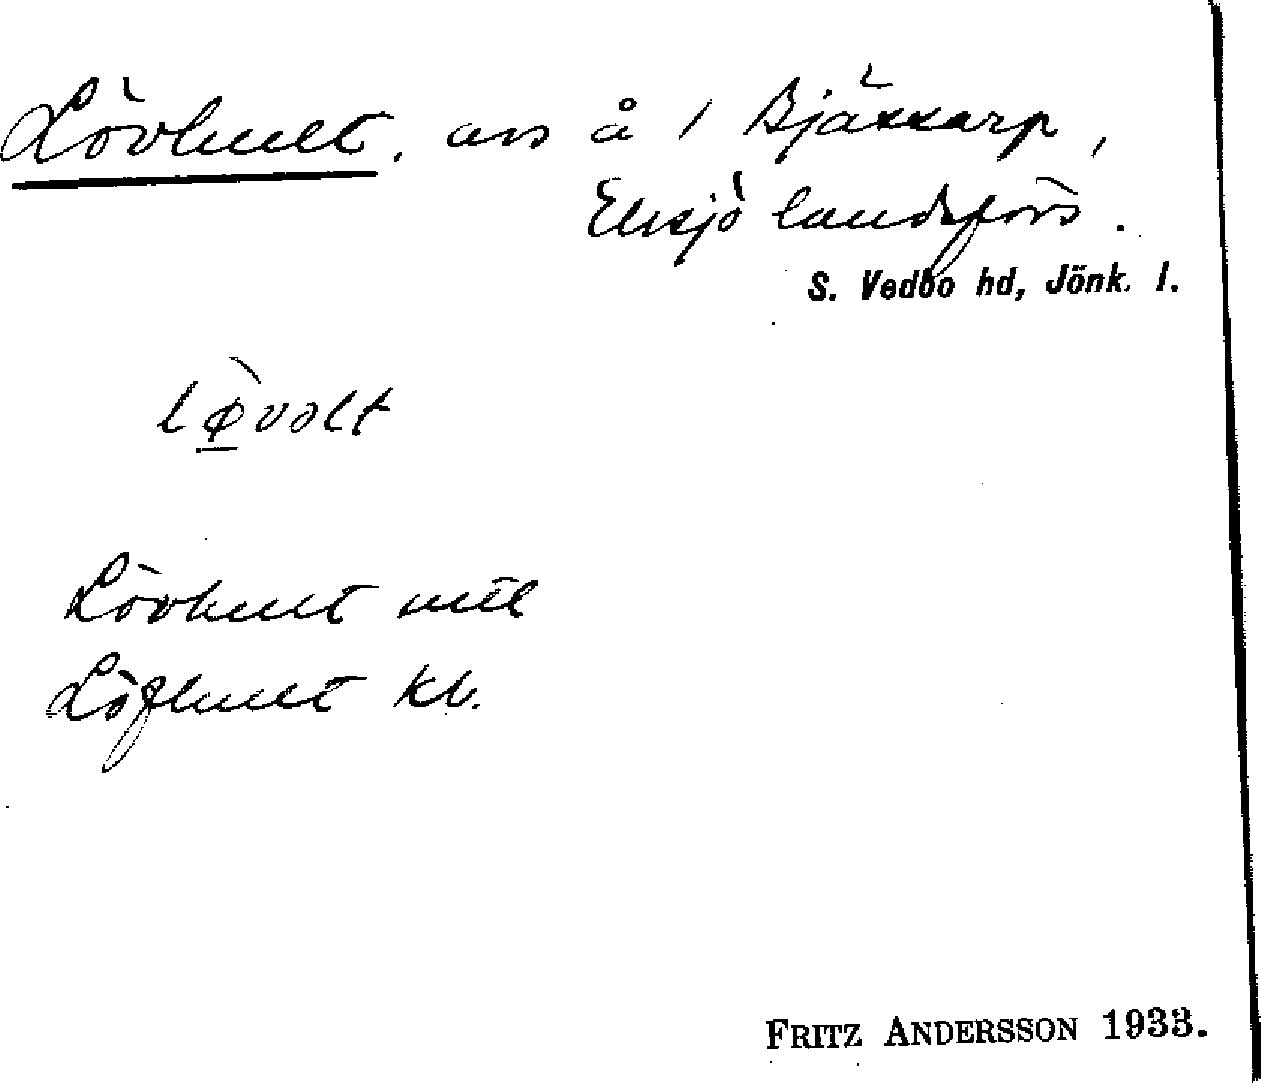 Lövhult, avs å 1 Bjäkkarp,
Eksjö landsförs.
S. Vedbo hd, Jönk. l.
lø̀vəlt
Lövhult
Löfhult kb.
FRITZ ANDERSSON 1933.